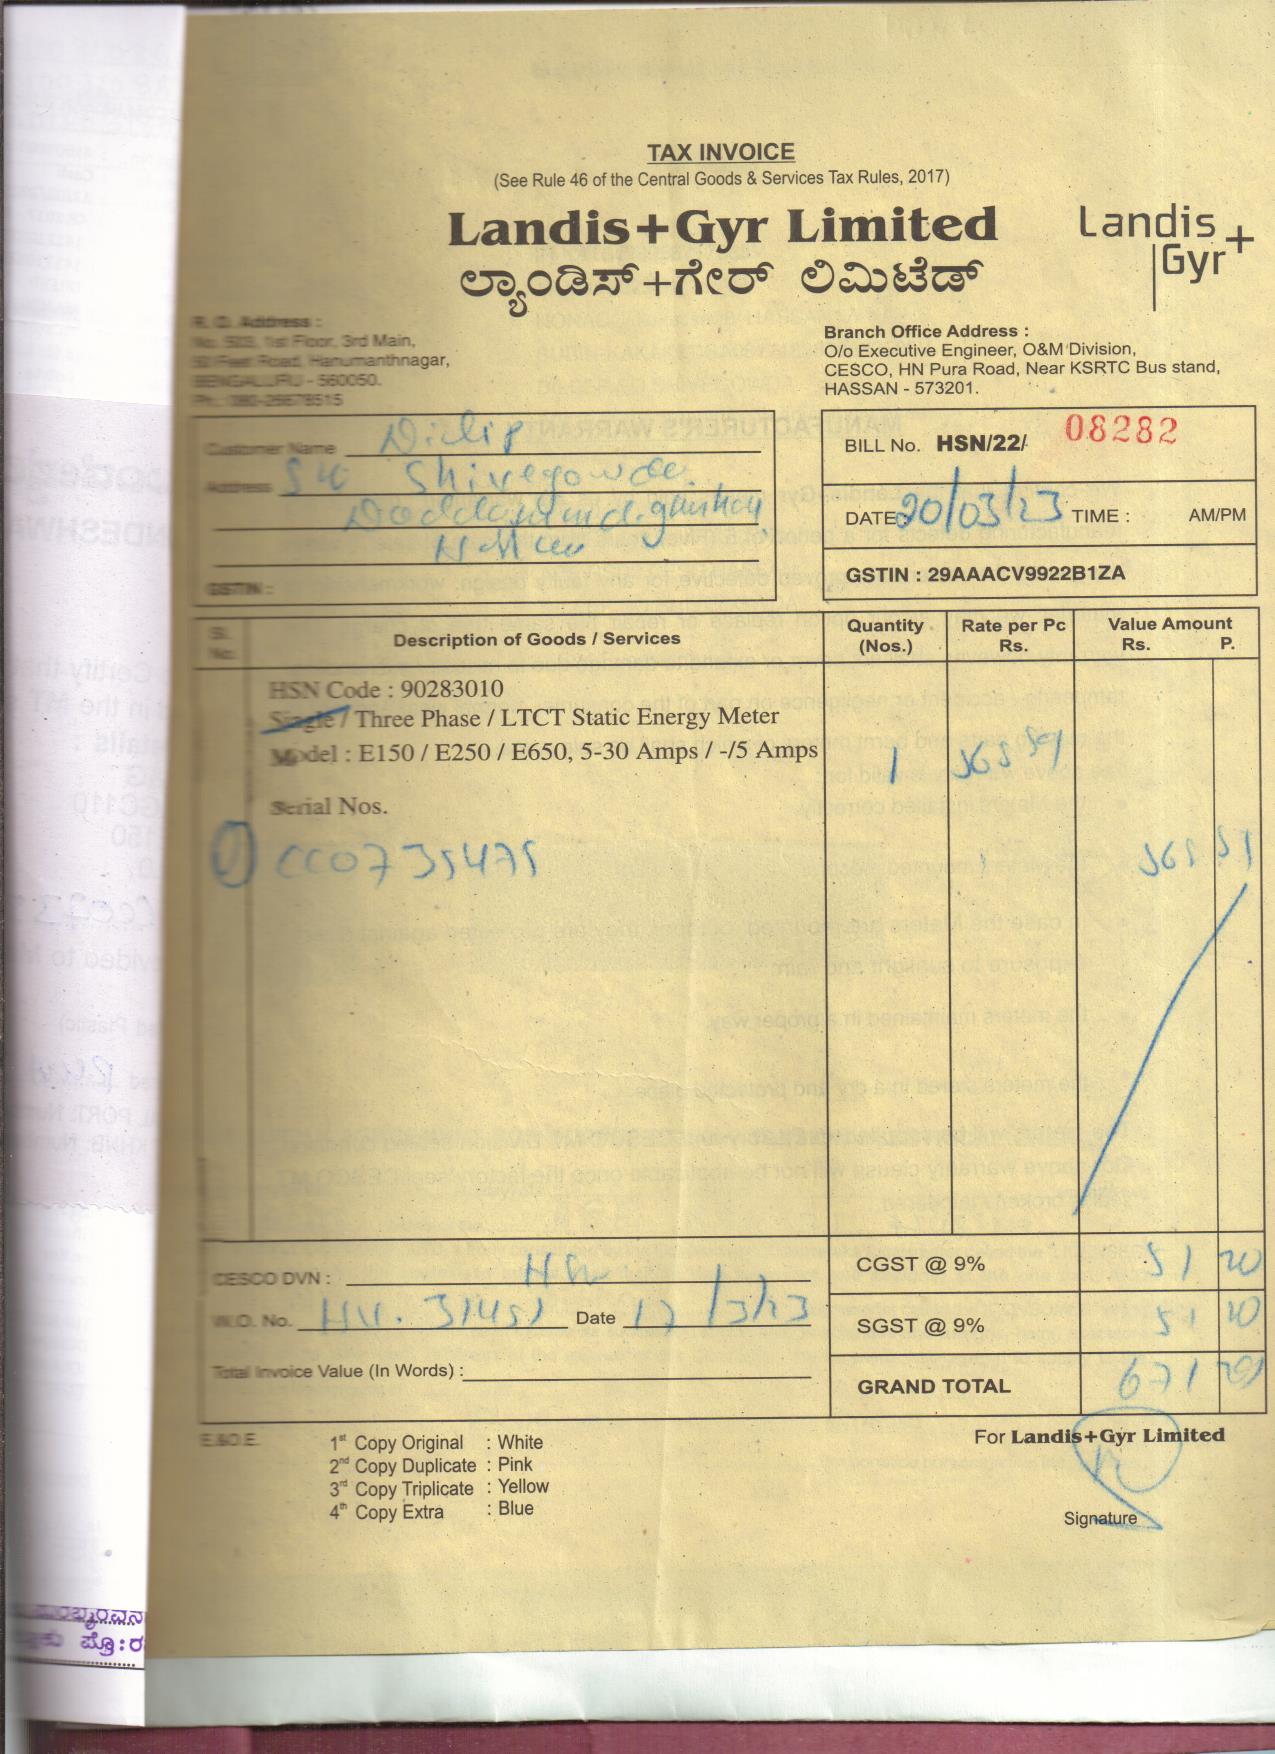 TAX INVOICE
(See Rule 46 of the Central Goods & Services Tax Rules, 2017)
Landis+Gyr Limited
ಲ್ಯಾಂಡಿಸ್+ಗೇರ್ ಲಿಮಿಟೆಡ್
Landis
Gyr+
R. O. Address :
No. 503, 1st Floor, 3rd Main,
50 Feet Road, Hanumanthnagar,
BENGALURU - 560050.
Ph.: 080-26678515
Branch Office Address :
O/o Executive Engineer, O&M Division,
CESCO, HN Pura Road, Near KSRTC Bus stand,
HASSAN - 573201.
Customer Name Dilip
Address S/o Shivegowda
GSTIN :
BILL No. HSN/22/ 08282
DATE : 20/03/23 TIME : AM/PM
GSTIN : 29AAACV9922B1ZA
Sl. No. Description of Goods / Services Quantity (Nos.) Rate per Pc Rs. Value Amount Rs. P.
HSN Code : 90283010
Single / Three Phase / LTCT Static Energy Meter
Model : E150 / E250 / E650, 5-30 Amps / -/5 Amps 1
Serial Nos.
1 CC0735475
CESCO DVN :
W.O. No. Date 17/3/23
Total Invoice Value (In Words) :
CGST @ 9% 51 20
SGST @ 9% 51 20
GRAND TOTAL 671
E.&O.E.
1st Copy Original : White
2nd Copy Duplicate : Pink
3rd Copy Triplicate : Yellow
4th Copy Extra : Blue
For Landis+Gyr Limited
Signature